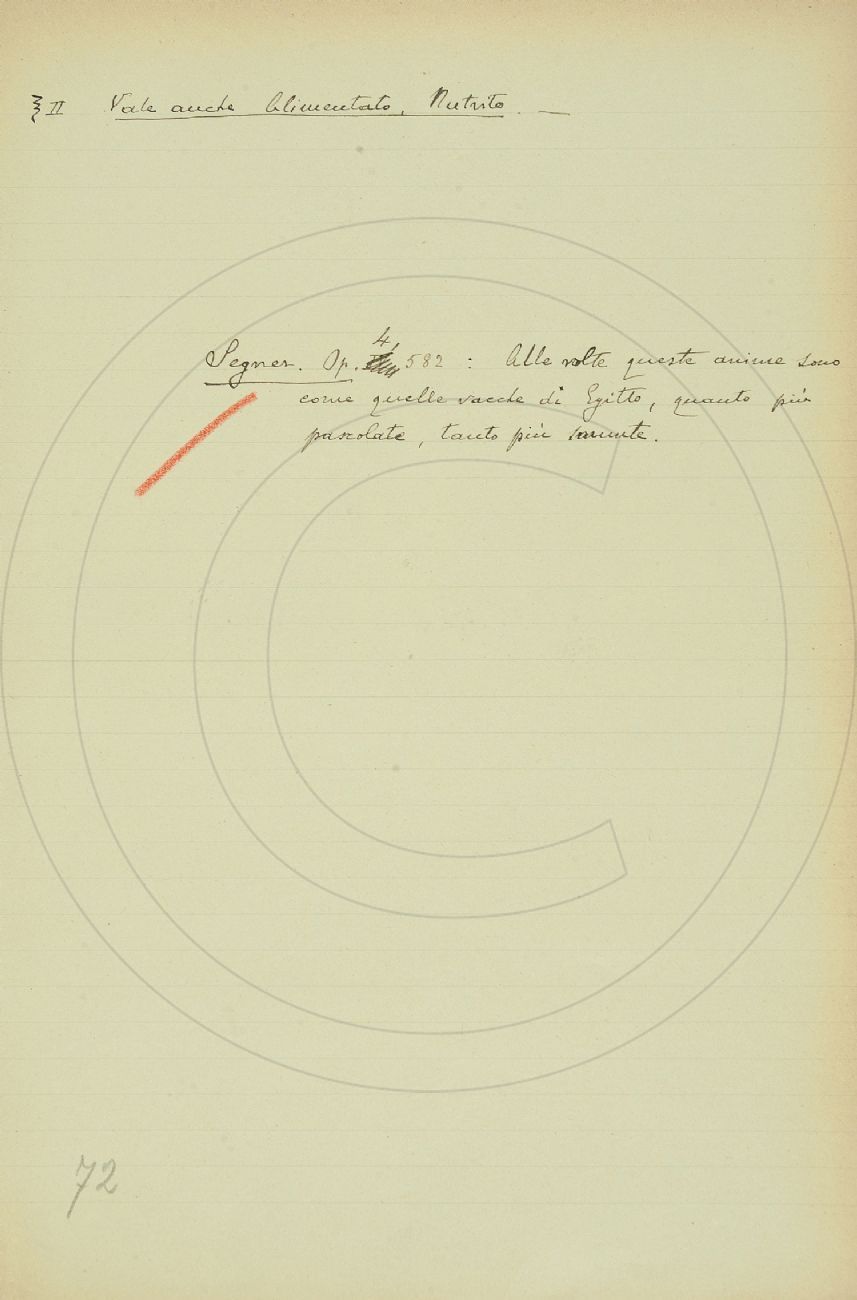 § II Vale anche Alimentato, Nutrito. —
Segner. Op. 4, 582 : Alle volte queste anime sono
come quelle vacche di Egitto, quanto più
pascolate, tanto più smunte.
72